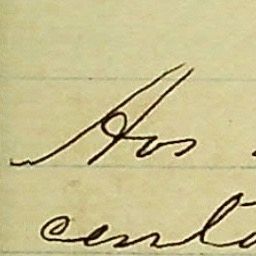 Hos
centa